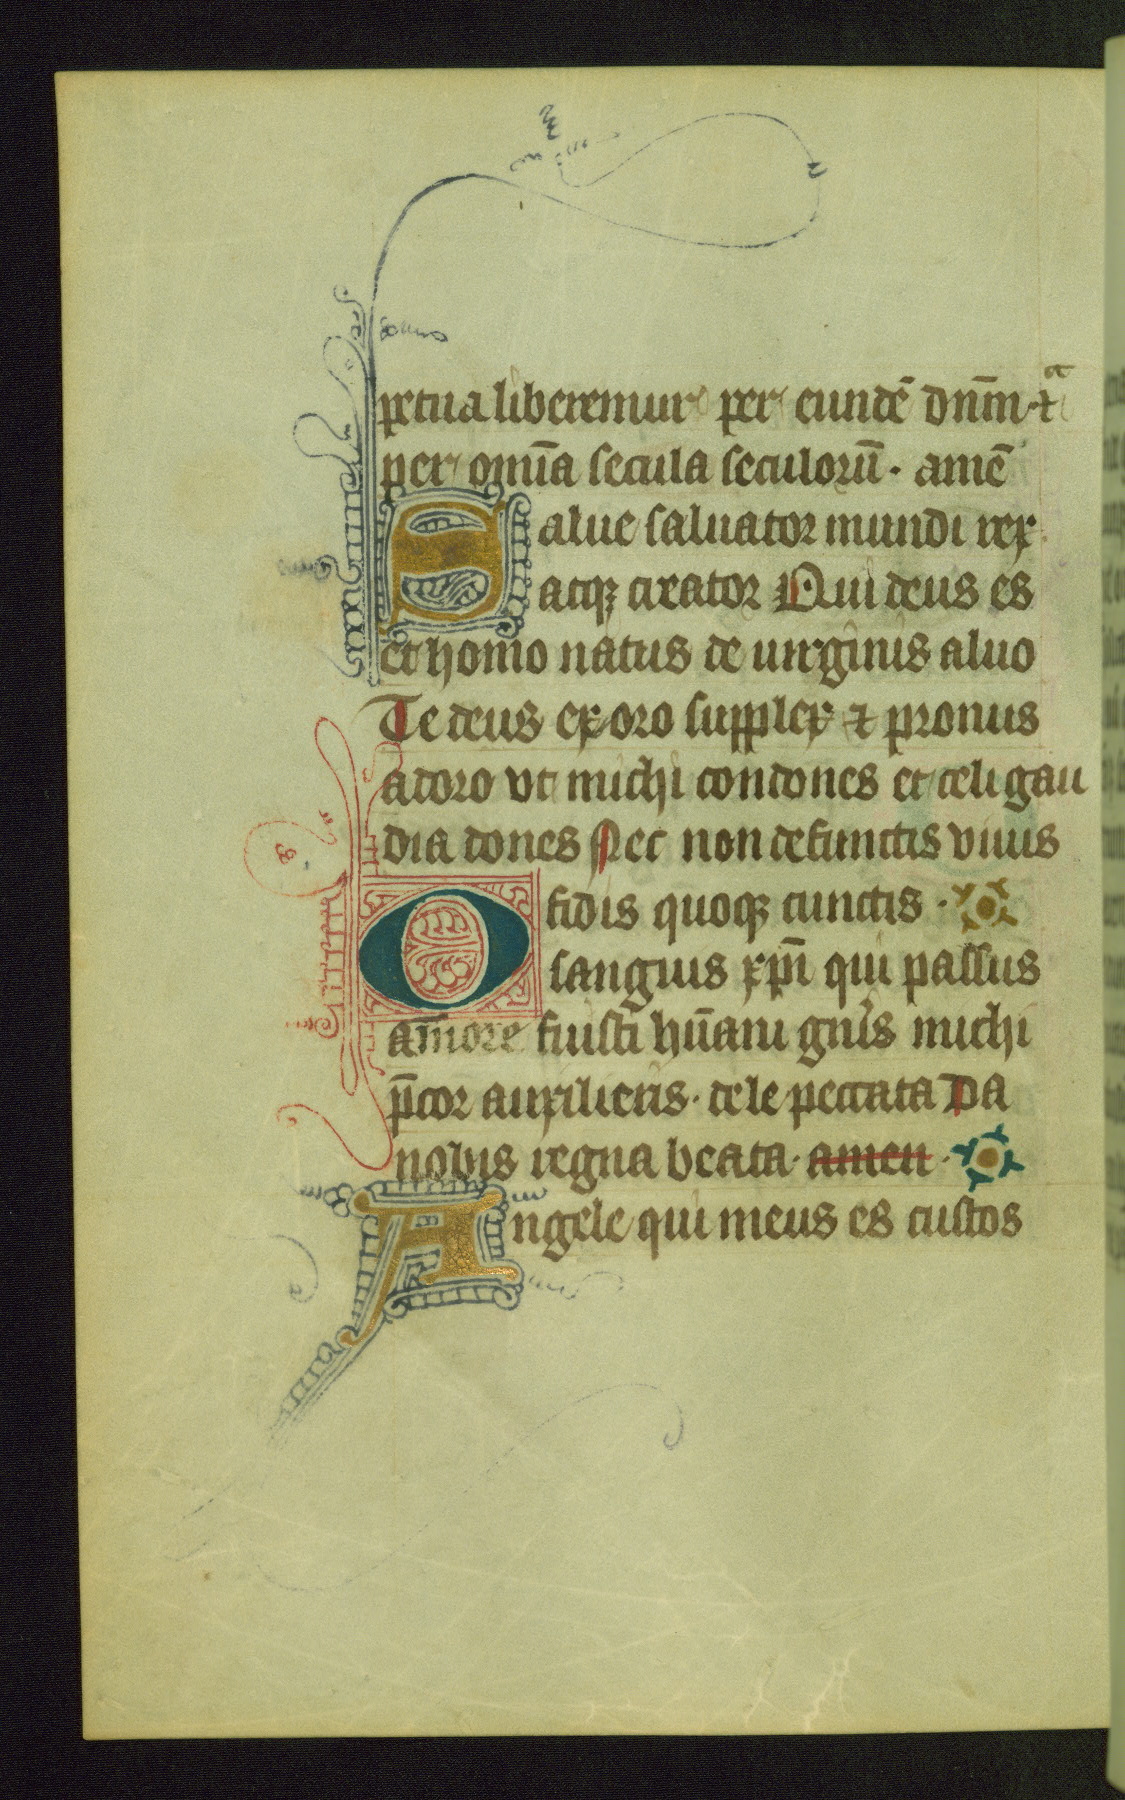 petua liberemur per eundē dn̄m ⁊ͣ
per om̄ia secula seculorū · amē
Salue saluator mundi rex
atqꝫ creator Qui deus es
et homo natus de uirginis aluo
Te deus exoro supplex ⁊ pronus
adoro vt michi condones et celi gau
dia dones Nec non defunctis viuis
fidis quoqꝫ cunctis ·
O sanguis xp̄i qui passus
am̄ore fuisti hūani gn̄is michi
p̄cor auxilieris · dele peccata Da
nobis regna beata · amen ·
Angele qui meus es custos